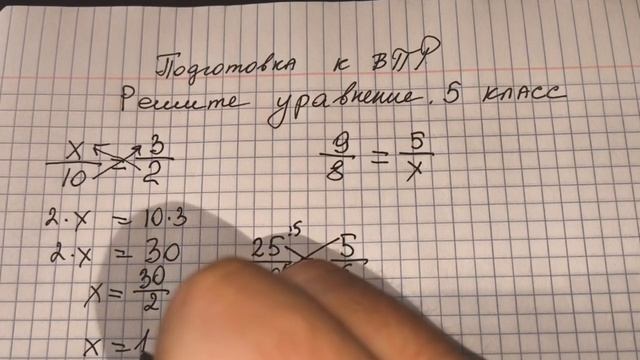 Подготовка к ВПР
Решите уравнение. 5 класс
x/10 = 3/2
2·x = 10·3
2·x = 30
x = 30/2
x = 1
9/8 = 5/x
25 :5 5